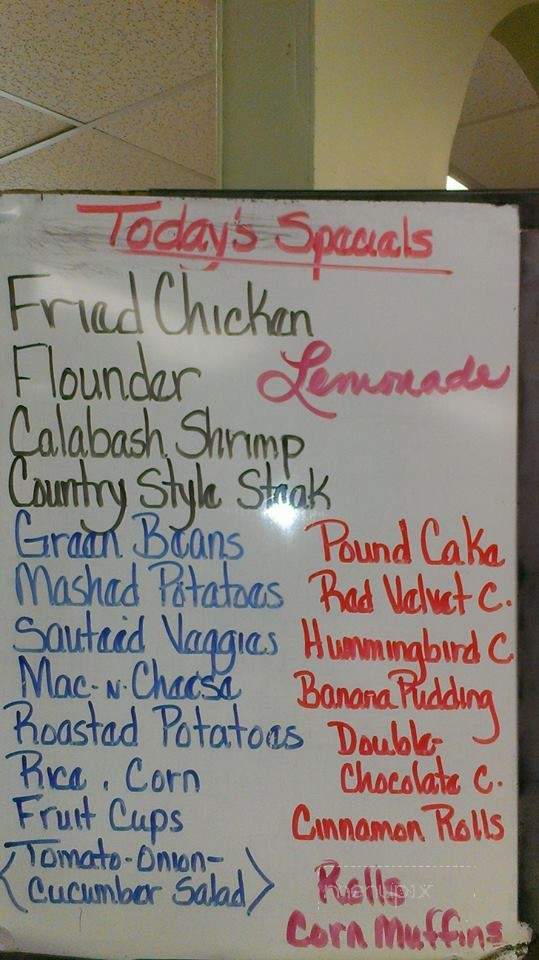 Today's Specials
Fried Chicken
Flounder
Lemonade
Calabash Shrimp
Country Style Steak
Green Beans
Mashed Potatoes
Sauteed Veggies
Mac-N-Cheese
Roasted Potatoes
Rice, Corn
Fruit Cups
<Tomato-Onion-
Cucumber Salad>
Pound Cake
Red Velvet C.
Hummingbird C
Banana Pudding
Double-
Chocolate C.
Cinnamon Rolls
Rolls
menupix
Corn Muffins